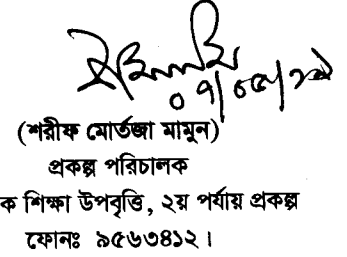 (শরীফ মোর্তজা মামুন)
প্রকল্প পরিচালক
ক শিক্ষা উপবৃত্তি, ২য় পর্যায় প্রকল্প
ফোনঃ ৯৫৬৩৪১২।